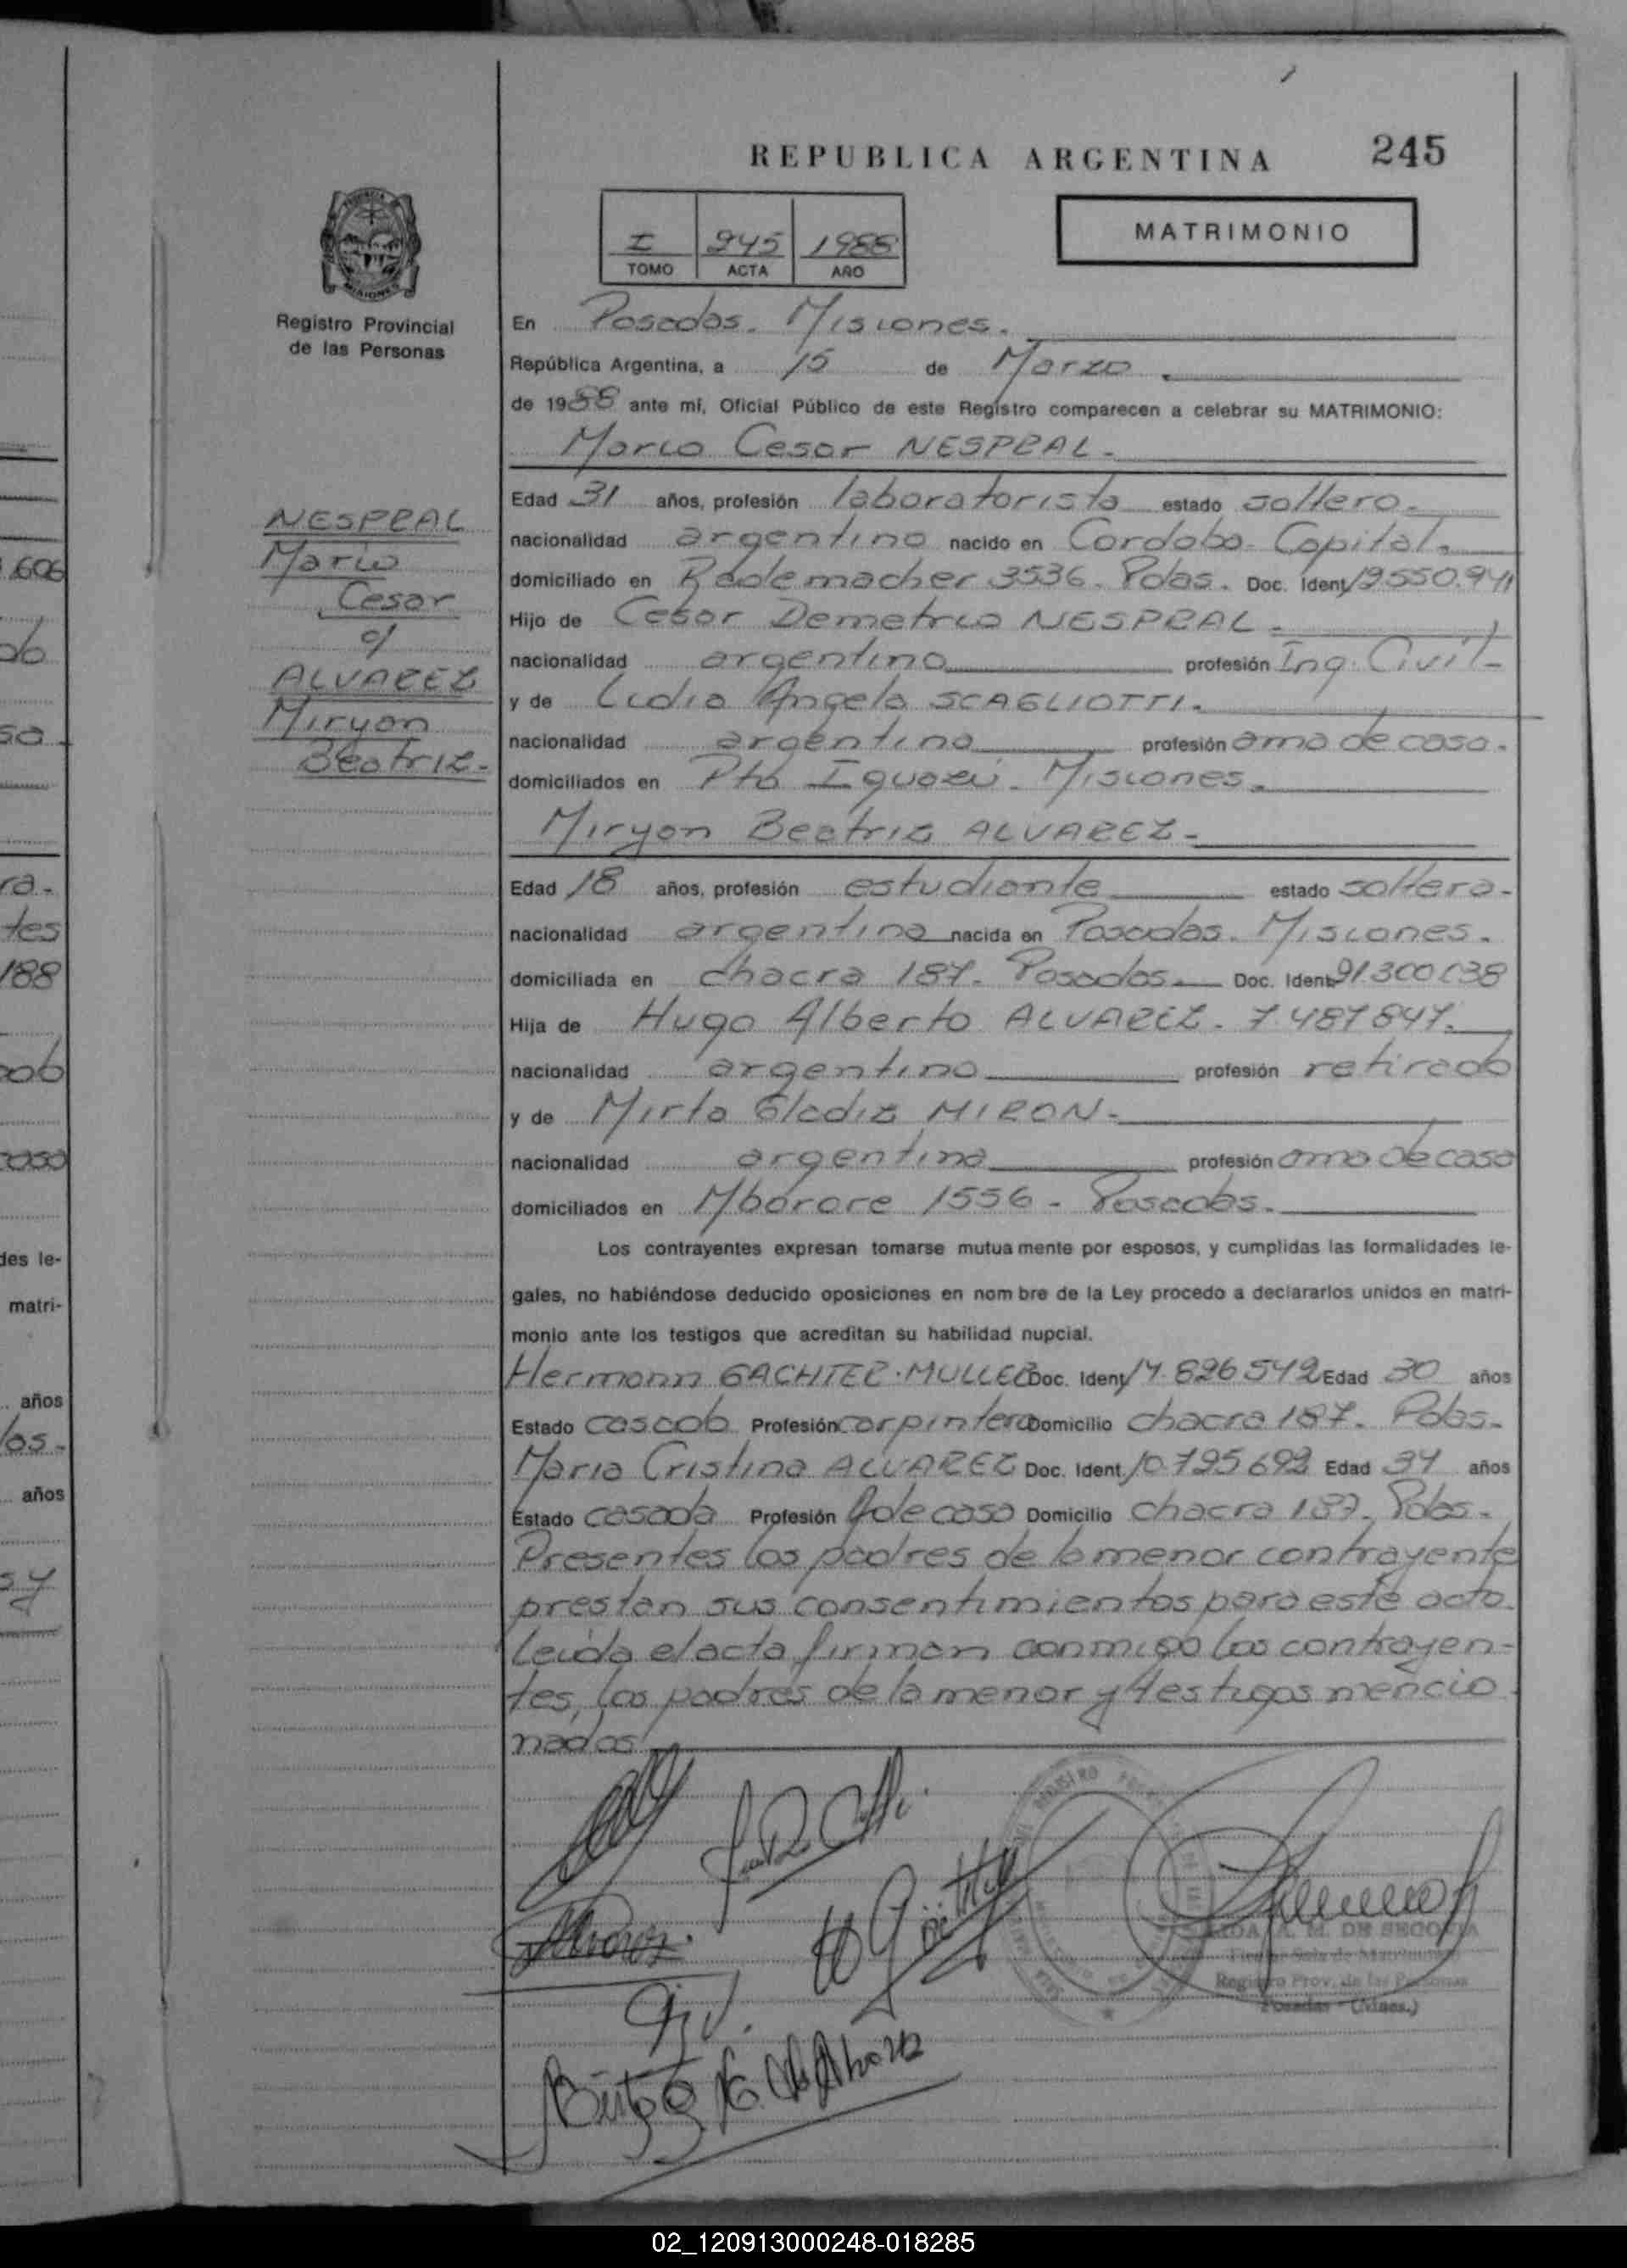 REPUBLICA ARGENTINA 245
MATRIMONIO
I 245 1988
TOMO ACTA AÑO
MISIONES
Registro Provincial
de las Personas
En Posadas. Misiones.
República Argentina, a 15 de Marzo.
de 1988 ante mí, Oficial Público de este Registro comparecen a celebrar su MATRIMONIO:
Mario Cesar NESPRAL-
NESPRAL
Mario
Cesar
c/
ALVAREZ
Miryan
Beatriz-
Edad 31 años, profesión laboratorista estado soltero-
nacionalidad argentino nacido en Cordoba- Capital.
domiciliado en Rademacher 3536. Pdas. Doc. Ident.
Hijo de Cesar Demetrio NESPRAL-
nacionalidad argentino profesión Ing. Civil-
y de Lidia Angela SCAGLIOTTI.
nacionalidad argentina profesión ama de casa.
domiciliados en Pto Iguazú. Misiones.
Miryan Beatriz ALVAREZ-
Edad 18 años, profesión estudiante estado soltera-
nacionalidad argentina nacida en Posadas. Misiones.
domiciliada en chacra 187. Posadas Doc. Ident.
Hija de Hugo Alberto ALVAREZ. 7.487.847.
nacionalidad argentino profesión retirado
y de Mirta Gladiz MIRON-
nacionalidad argentina profesión ama de casa
domiciliados en Mborore 1556- Posadas.
Los contrayentes expresan tomarse mutua mente por esposos, y cumplidas las formalidades le-
gales, no habiéndose deducido oposiciones en nom bre de la Ley procedo a declararlos unidos en matri-
monio ante los testigos que acreditan su habilidad nupcial.
Hermann GACHTER-MULLER Doc. Ident. 14.826.542 Edad 30 años
Estado casado Profesión carpintero Domicilio chacra 187. Pdas-
Maria Cristina ALVAREZ Doc. Ident. 10.795.692 Edad 34 años
Estado casada Profesión A de casa Domicilio chacra 187. Pdas-
Presentes los padres de la menor contrayente
prestan sus consentimientos para este acto.
Leida el acta firman conmigo los contrayen-
tes, los padres de la menor y testigos mencio
nados
REGISTRO
A. M. DE SEGOVIA
Registro Prov. de las Personas
Posadas (Mnes.)
606
188
des le-
matri-
años
años
02_120913000248-018285